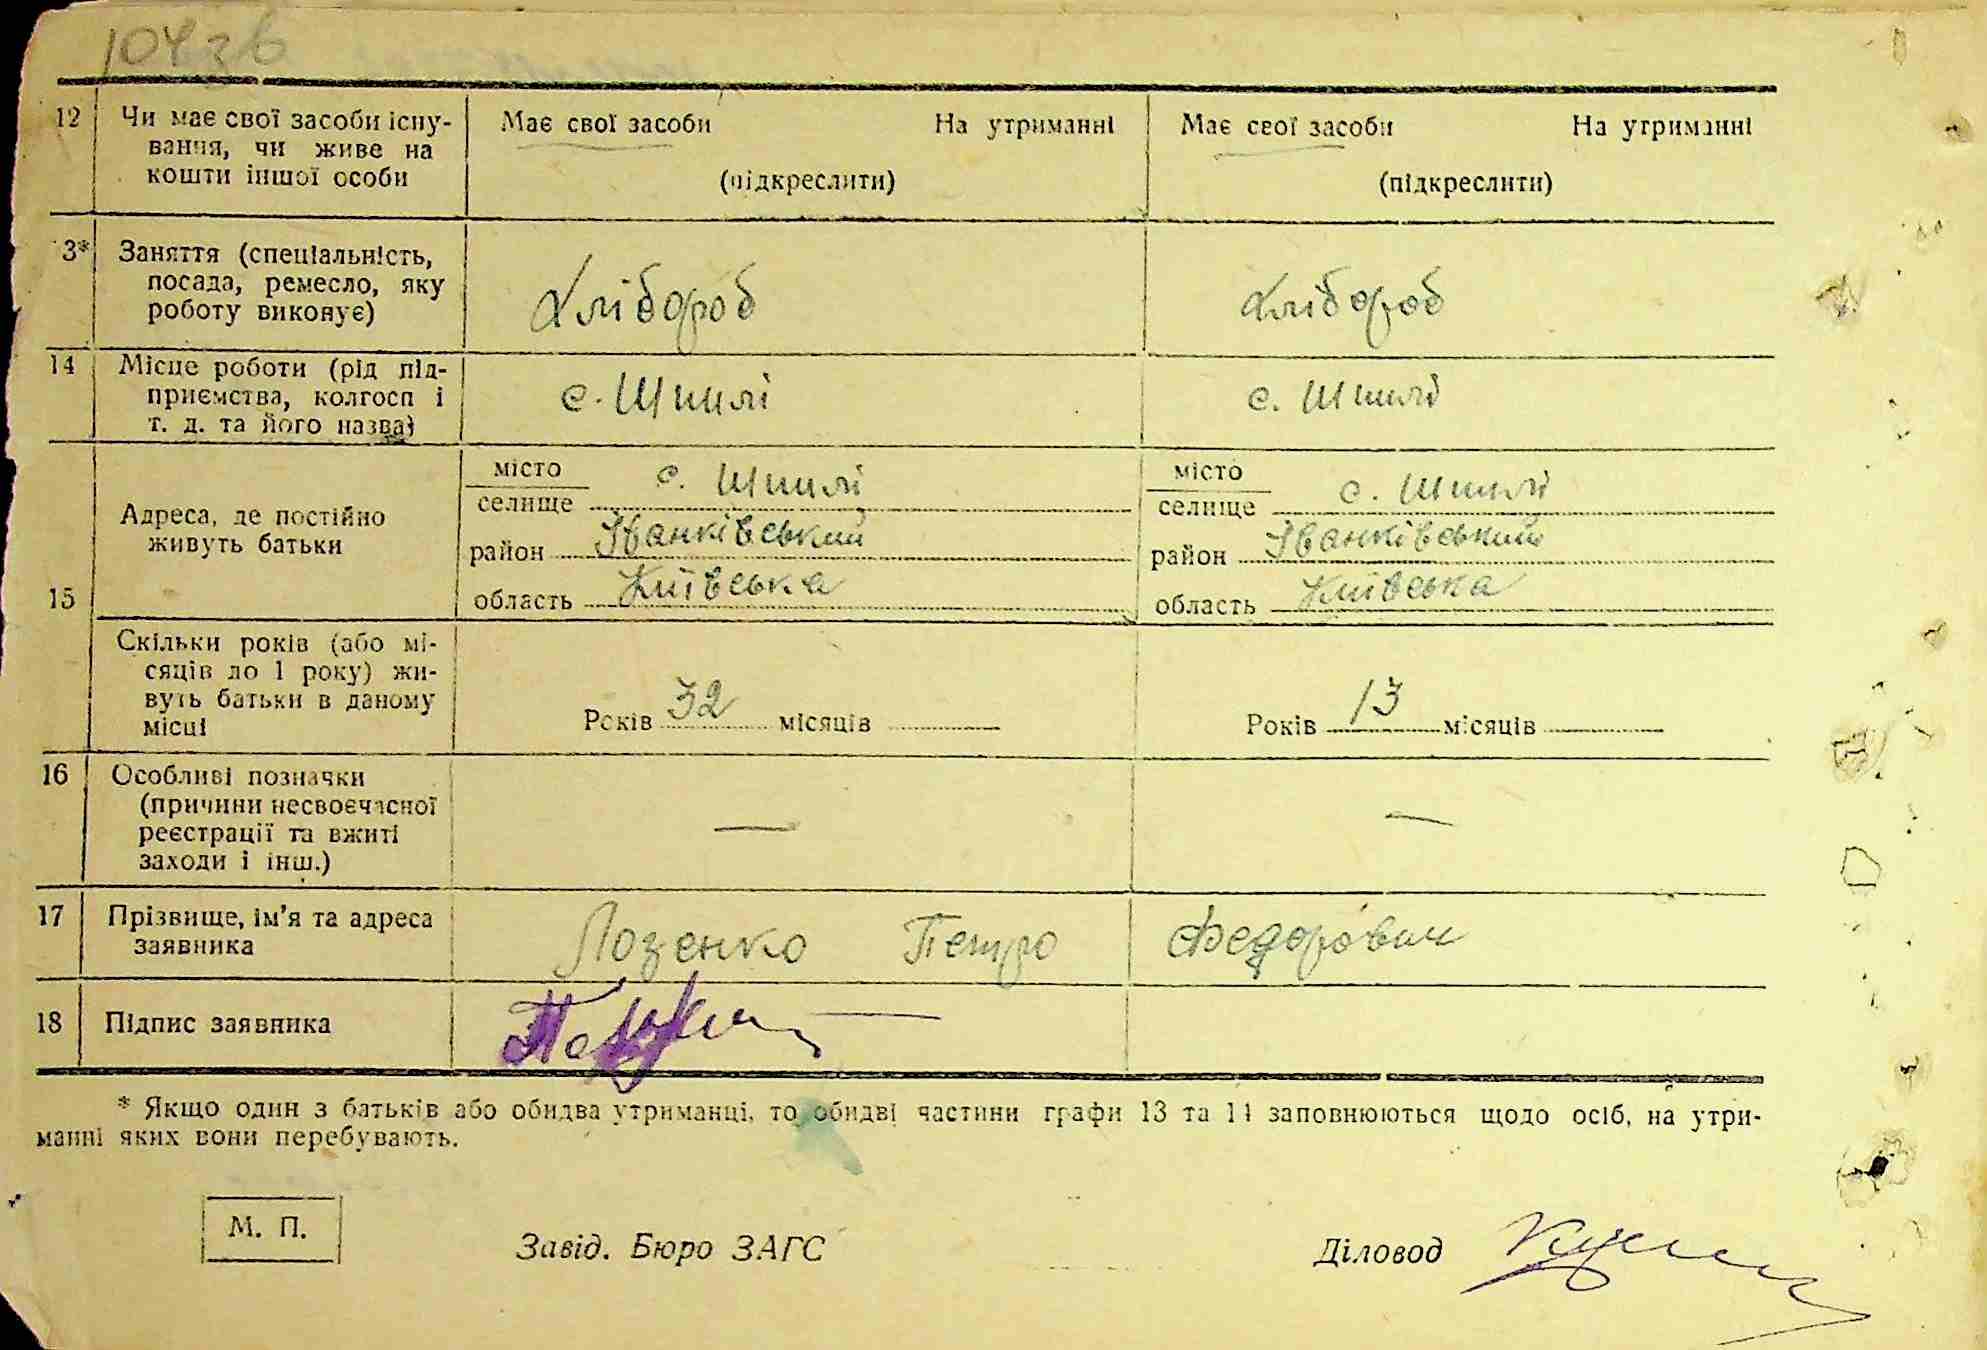 104зв
12 Чи має свої засоби існу- Має свої засоби На утриманні Має свої засоби На утриманні
вання, чи живе на
кошти іншої особи (підкреслити) (підкреслити)
3* Заняття (спеціальність,
посада, ремесло, яку Хлібороб Хлібороб
роботу виконує)
14 Місце роботи (рід під-
приємства, колгосп і с. Шпилі с. Шпилі
т. д. та його назва)
місто с. Шпилі місто с. Шпилі
селище селище
Адреса, де постійно
живуть батьки район Іванківський район Іванківський
15 область Київська область Київська
Скільки років (або мі-
сяців до 1 року) жи-
вуть батьки в даному
місці Років 32 місяців Років 13 місяців
16 Особливі позначки
(причини несвоєчасної
реєстрації та вжиті — —
заходи і інш.)
17 Прізвище, ім'я та адреса
заявника Лозенко Петро Федорович
18 Підпис заявника
* Якщо один з батьків або обидва утриманці, то обидві частини графи 13 та 14 заповнюються щодо осіб, на утри-
манні яких вони перебувають.
М. П.
Завід. Бюро ЗАГС Діловод